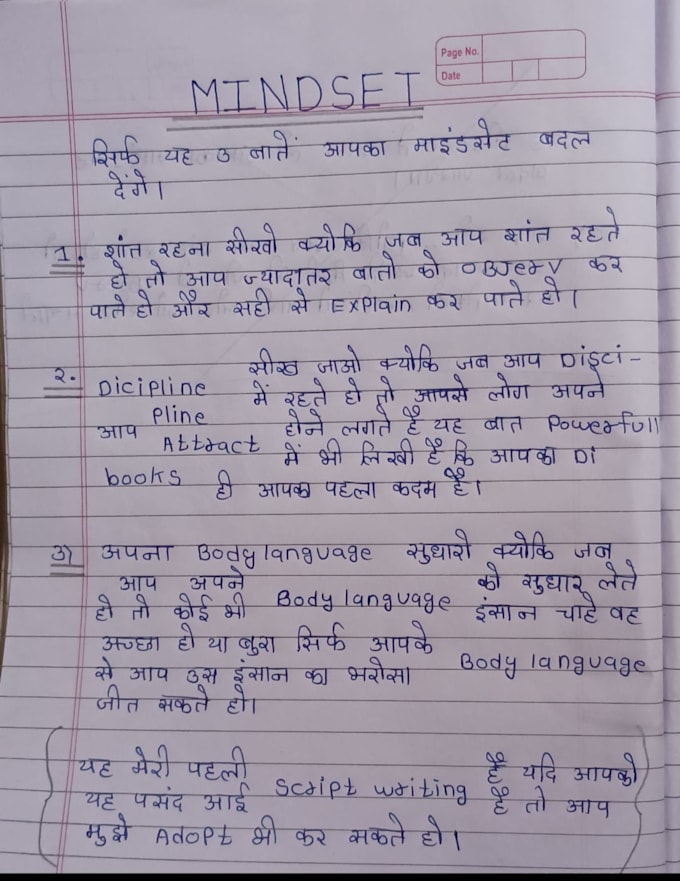 Page No.
Date
MINDSET
सिर्फ यह 3 बातें आपका माइंडसेट बदल
देंगे।
1. शांत रहना सीखो क्योकि जब आप शांत रहते
हो तो आप ज्यादातर बातो को OBJerv कर
पाते हो और सही से Explain कर पाते हो।
2. Dicipline सीख जाओ क्योकि जब आप Disci-
pline में रहते हो तो आपसे लोग अपने
आप Attract होने लगते है यह बात Powerfull
books में भी लिखी है कि आपका Di
ही आपका पहला कदम है।
3) अपना Body language सुधारो क्योकि जब
आप अपने Body language को सुधार लेते
हो तो कोई भी इंसान चाहे वह
अच्छा हो या बुरा सिर्फ आपके Body language
से आप उस इंसान का भरोसा
जीत सकते हो।
यह मेरी पहली Script writing है यदि आपको
यह पसंद आई है तो आप
मुझे Adopt भी कर सकते हो।